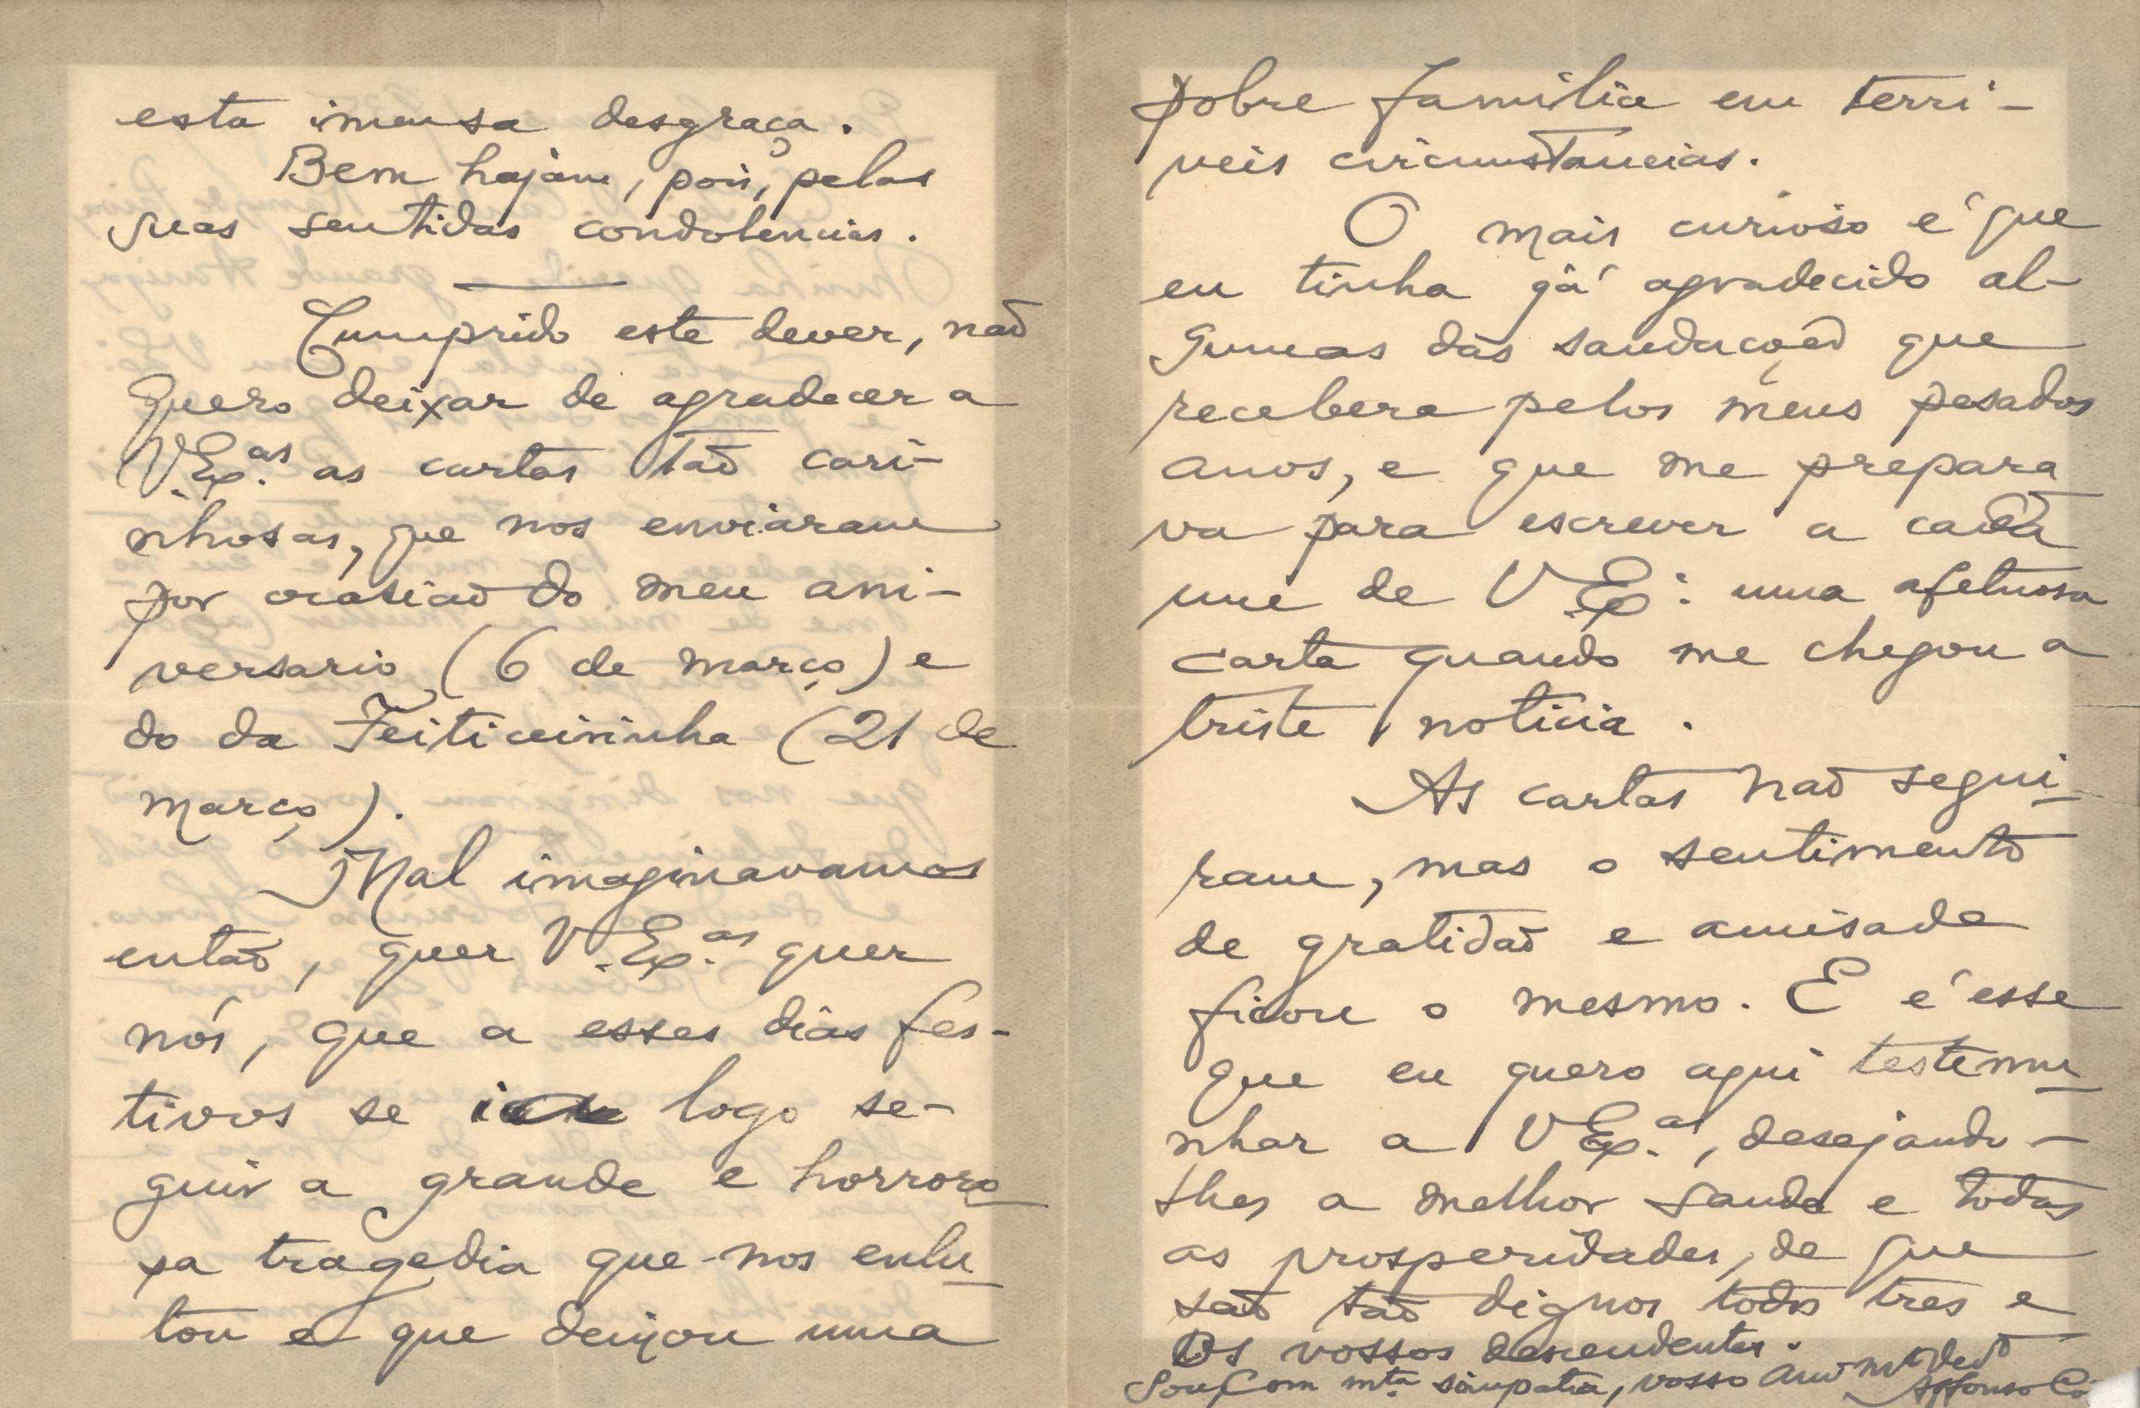 esta imensa desgraça.
Bem hajam, pois, pelas
suas sentidas condolencias.
Cumprido este dever, não
quero deixar de agradecer a
V.Ex.as as cartas tão cari-
nhosas, que nos enviaram
por ocasião do meu ani-
versario (6 de março) e
do da Feiticeirinha (21 de
março).
Mal imaginavamos
então, quer V.Ex.as quer
nós, que a esses dias fes-
tivos se logo se-
guir a grande e horroro
sa tragedia que nos enlu_
tou e que deixou uma
pobre familia em terri-
veis circumstancias.
O mais curioso é que
eu tinha já agradecido al-
gumas das saudações que
recebera pelos meus pesados
anos, e que me prepara
va para escrever a cada
um de V.Ex.: uma afetuosa
carta quando me chegou a
triste noticia.
As cartas não segui_
ram, mas o sentimento
de gratidão e amisade
ficou o mesmo. E é esse
que eu quero aqui testemu_
nhar a V.Ex.as, desejando-
lhes a melhor saude e todas
as prosperidades, de que
são tão dignos todos tres e
os vossos descendentes.
Sou, com mta simpatia, vosso Amo mto Dedo
Affonso